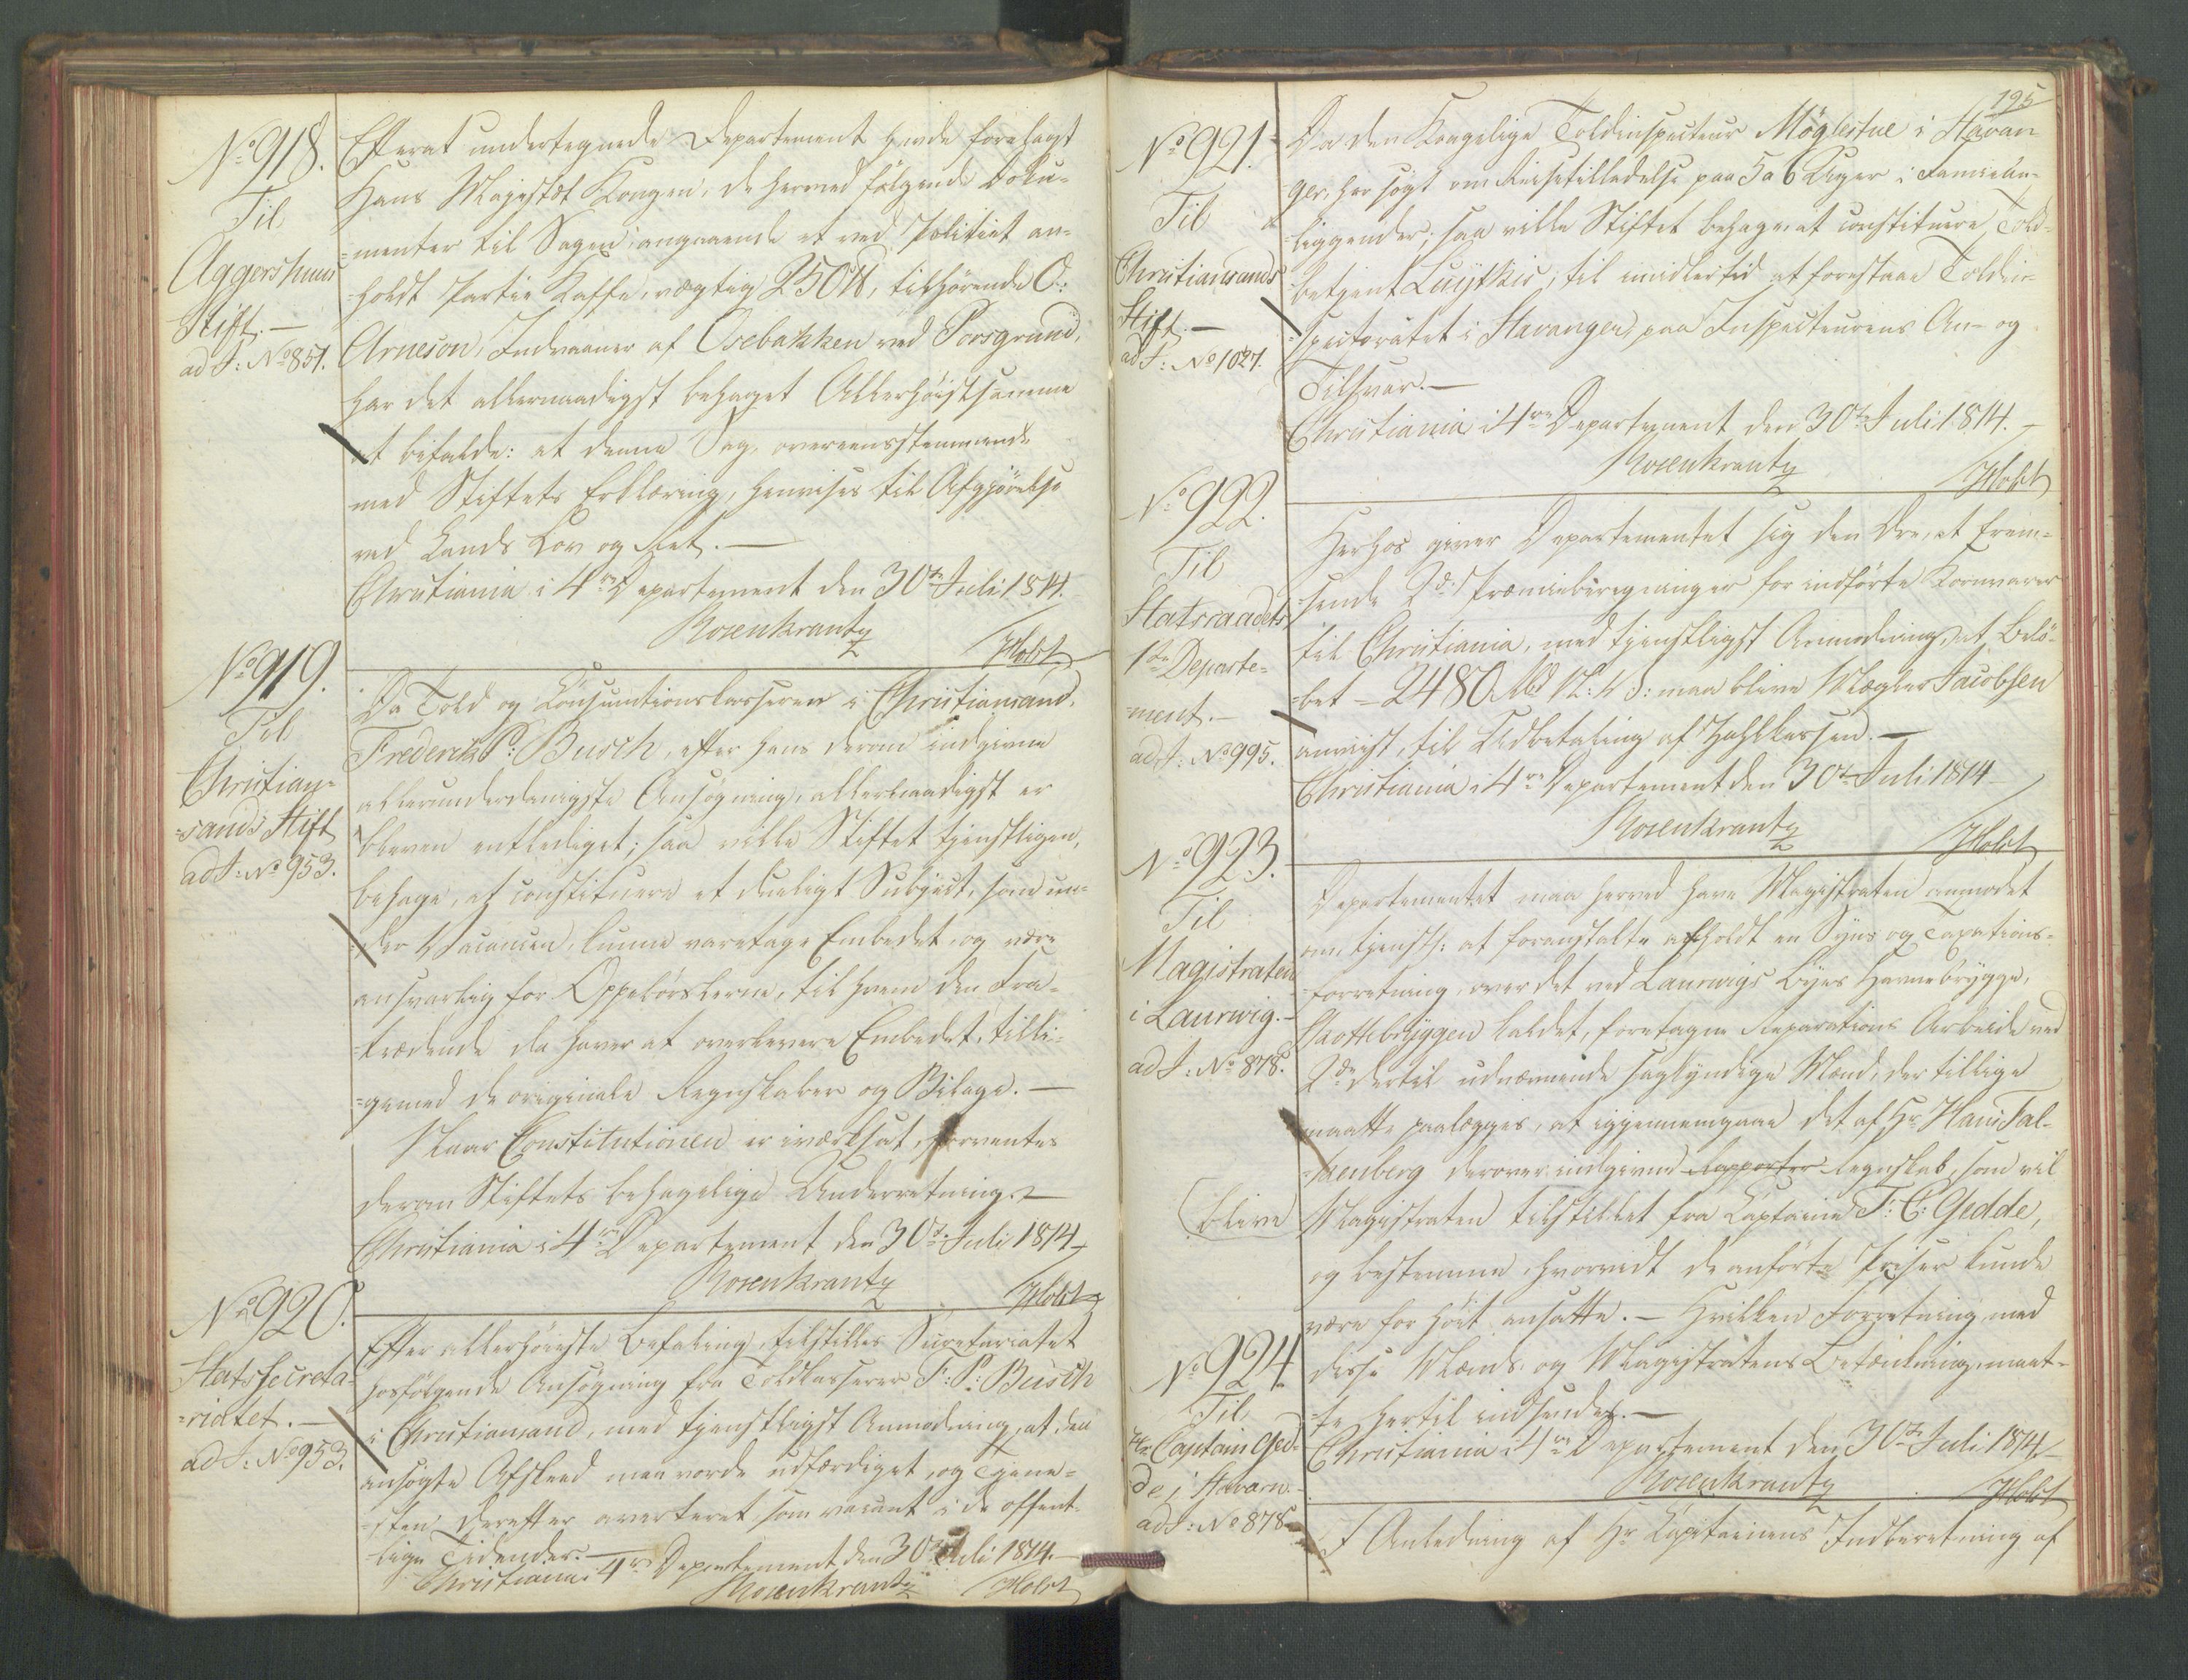 No 918.
Til
Aggershuus
Stift.—
ad J: No 851.
Efterat undertegnede Departement havde forelagt
Hans Majestæt Kongen, de hermed følgende Doku-
=menter til Sagen angaaende et ved Politiet an-
holdt Partie Kaffe, vægtig 250 ℔, tilhørende O:
Arneson, Indvaaner af Osebakken ved Porsgrund,
har det allernaadigst behaget Allerhøistsamme
at befalde: at denne Sag, overeensstemmende
med Stiftets Erklæring, henvises til Afgjørelse
ved Lands Lov og Ret.—
Christiania i 4de Departement den 30te Juli 1814.
Rosenkrantz
Holst
No 919.
Til
Christian-
=sands Stift
ad J: No 953.
Da Told og Consumtionskasserer i Christiansand,
Frederik P: Busch, efter hans derom indgivne
allerunderdanigste Ansøgning, allernaadigst er
bleven entlediget; saa ville Stiftet tjenstligen,
behage, at constituere et dueligt Subject, som un-
=der Vacancen, kunne varetage Embedet, og være
ansvarlig for Oppebørslerne, til hvem den Fra-
=trædende da haver at overlevere Embedet, tilli-
=gemed de originale Regnskaber og Bilage.—
Naar Constitutionen er iværksat, forventes
derom Stiftets behagelige Underretning.—
Christiania i 4de Departement den 30te Juli 1814.
Rosenkrantz
Holst
No 920.
Statssecreta-
=riatet.—
ad J: No 953.
Efter allerhøieste Befaling, tilstilles Secretariatet
hosfølgende Ansøgning fra Toldkasserer F: P: Busch
i Christiansand, med tjenstligst Anmodning, at den
ansøgte Afskeed maa vorde udfærdiget, og Tjene-
=sten derefter averteret som vacant i de offent-
=lige Tidender.—
Christiania i 4de Departement den 30te Juli 1814.—
Rosenkrantz
Holst
195
No 921.
Til
Christiansands
Stift.—
ad J: No 1027.
Da den Kongelige Toldinspecteur Møglestue i Stavan
ger, har søgt om Reisetilladelse paa 5 a 6 Uger i Familiean-
=liggender; saa ville Stiftet behage, at constituere Told-
betjent Luytkis, til imidlertid at forestaae Toldin-
=spectoratet i Stavanger, paa Inspecteurens An- og
Tilsvar.—
Christiania i 4de Departement den 30te Juli 1814.—
Rosenkrantz
Holst
No 922.
Til
Statsraadets
1ste Departe-
=ment.—
ad J: No 995.
Herhos giver Departementet sig den Ære, at frem-
=sende 2de Præmieberegninger for indførte Kornvarer
til Christiania, med tjenstligst Anmodning, at Belø-
=bet — 2480 maa blive Mægler Jacobsen
anviist, til Udbetaling af Zahlkassen.—
Christiania i 4de Departement den 30te Juli 1814
Rosenkrantz
Holst
No 923.
Til
Magistraten
i Laurvig.—
ad J: No 878.
Departementet maa herved have Magistraten anmodet
om, tjenstl: at foranstalte afholdt en Syns og Taxations-
forretning, over det ved Laurvigs Byes Havnebrygge,
Skottebryggen kaldet, foretagne Reparations Arbeide ved
2de dertil udnævnende sagkyndige Mænd, der tillige
maatte paalægges, at igjennemgaae det af Hr Hans Fal-
=kenberg derover indgivne Rapporter Regnskab, som vil
(blive
Magistraten tilstillet fra Captaine T: C: Gedde,
og bestemme, hvorvidt de anførte Priser kunde
være for høit ansatte.— Hvilken Forretning med
disse Mænds, og Magistratens Betænkning, maat-
=te hertil indsendes.—
Christiania i 4de Departement den 30te Juli 1814
Rosenkrantz
Holst
No 924
Til
Hr Captain Ged-
de i Staværn.—
ad J: No 878.
I Anledning af Hr Capitainens Indberetning af